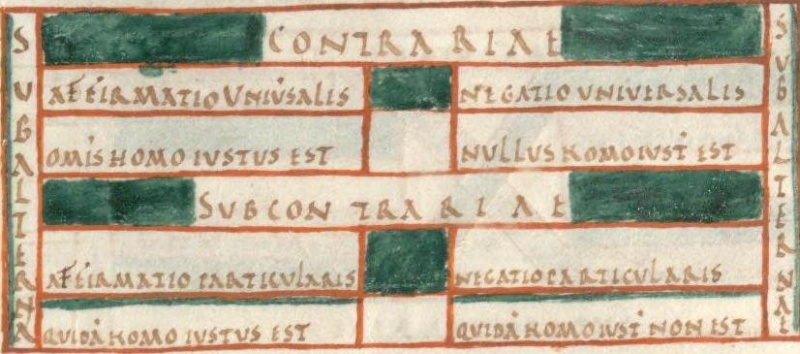 CONTRARIAE
AFFIRMATIO UNIVSALIS
NEGATIO UNIVERSALIS
OMIS HOMO IUSTUS EST
NULLUS HOMO IUST EST
SUBCONTRARIAE
AFFIRMATIO PARTICULARIS
NEGATIO PARTICULARIS
QUIDĀ HOMO IUSTUS EST
QUIDĀ HOMO IUST NON EST
SUBALTERNA
SUBALTERNAE